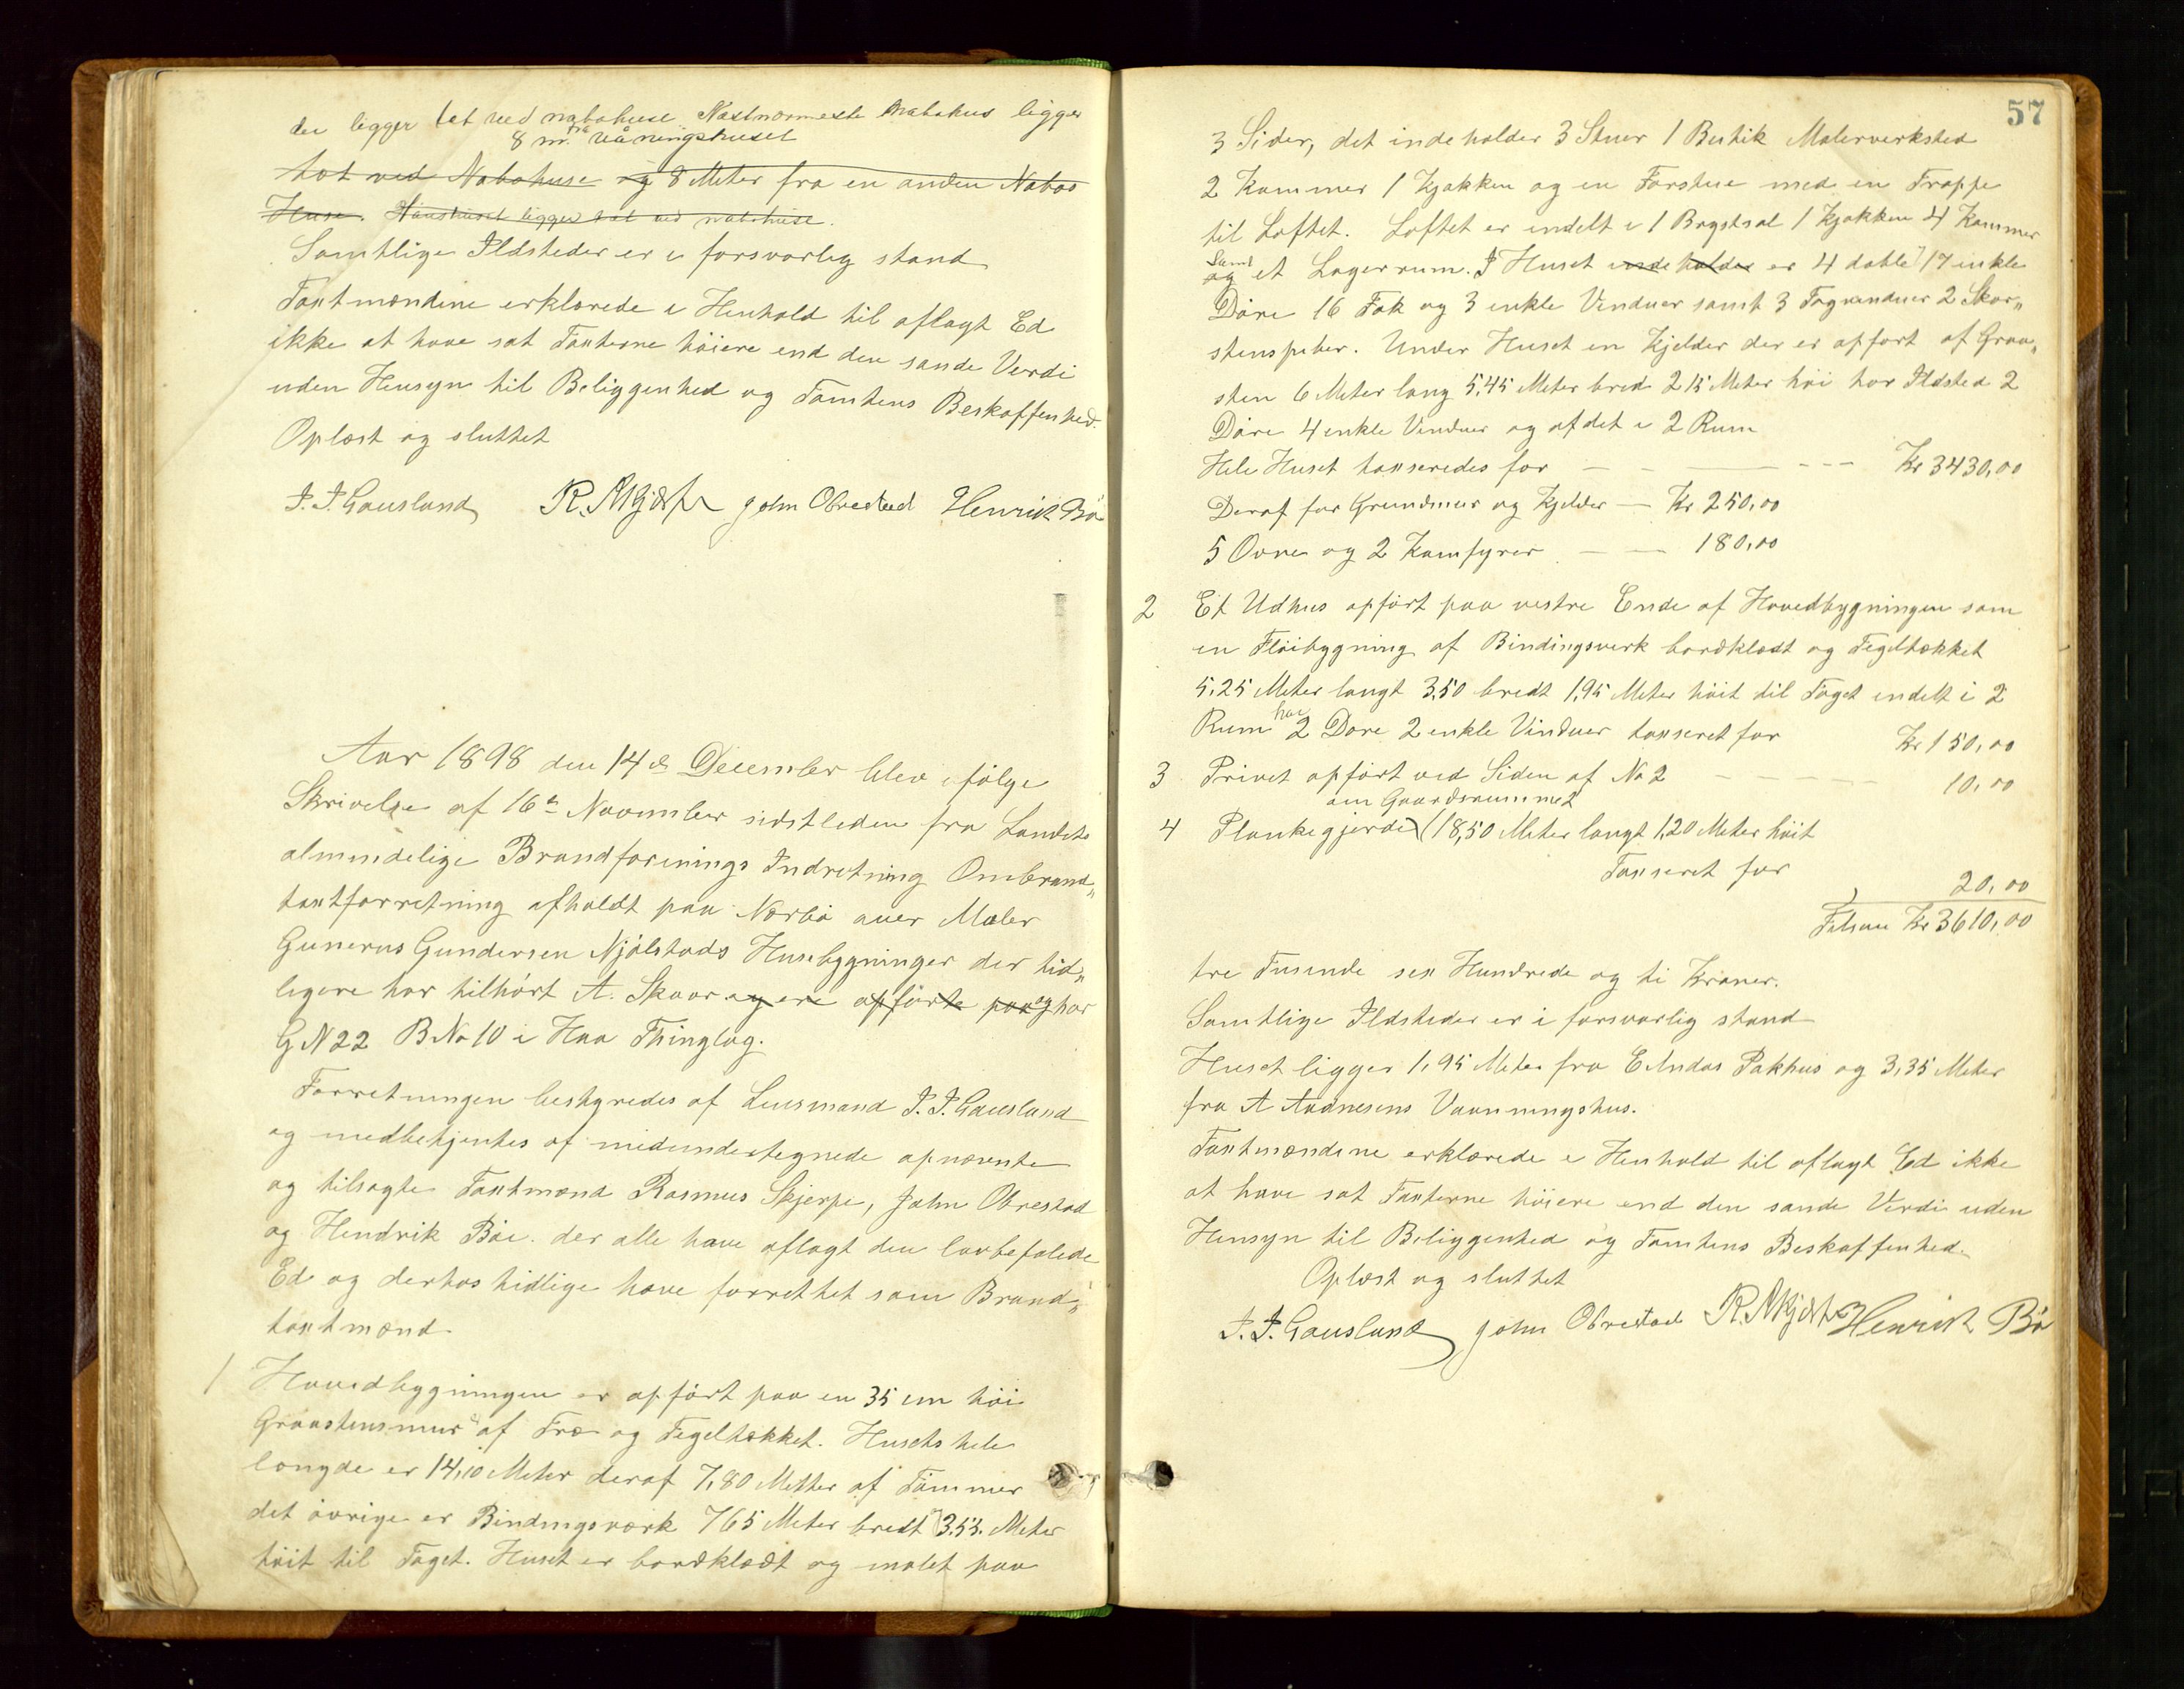 der ligger tet ved nabohuse Næstnærmeste Nabohus ligger
8 m. fra våningshuset
tæt ved Nabohuse og 8 Meter fra en anden Naboo
Huse. Vaanhuset ligger tæt ved nabohuse.
Samtlige Ildsteder er i forsvarlig stand
Taxtmændene erklærede i Henhold til aflagt Ed
ikke at have sat Taxterne höiere end den sande Verdi
uden Hensyn til Beliggenhed og Tomtens Beskaffenhed.
Oplæst og sluttet
J. J. Gausland R. Skjerpe John Obrestad Henrik Bö
Aar 1898 den 14de December blev ifölge
Skrivelse af 16de November sidstleden fra Landets
almindelige Brandforsinings Indretning Ombrand„
taxtforretning afholdt paa Nærbö over Maler
Gunerus Gundersen Njölstads Husebygninger der tid„
ligere har tilhört A. Skaar og ere opförte paa og har
G N 22 B No 10 i Haa Thinglag.
Forretningen bestyredes af Lensmand J. J. Gausland
og medbetjentes af medundertegnede opnævnte
og tilsagte Taxtmænd Rasmus Skjerpe, John Obrestad
og Hendrik Böe. der alle have aflagt den lovbefalede
Ed og derhos tidlige have forrettet som Brand„
taxtmænd
1 Hovedbygningen er opfört paa en 35 cm höi
Graastensmur af Træ og Tegeltækket. Husets hele
længde er 14,10 Meter deraf 7,80 Metter af Tömmer
det övrige er Bindingsværk 765 Meter bredt 3.53. Meter
höit til Taget. Huset er bordklædt og malet paa
57
3 Sider, det indeholder 3 Stuer 1 Butik Malerverksted
2 Kammer 1 Kjökken og en Forstue med en Trappe
til Loftet. Loftet er indelt i 1 Brystsal 1 Kjökken 4 Kammer
Samt
og et Lagerrum. I Huset indeholder er 4 doble 17 enkle
Döre 16 Fak og 3 enkle Vinduer samt 3 Tagvinduer 2 Skor„
stenspiber. Under Huset en Kjelder der er opfört af Graa„
sten 6 Meter lang 5,45 Meter bred 2 15 Meter höi har Ildsted 2
Döre 4 enkle Vinduer og afdet i 2 Rum
Hele Huset taxseredes for — — — - - - Kr 3430,00
Deraf for Grundmur og Kjelder — Kr 250,00
5 Ovne og 2 Komfyrer — — 180,00
2 Et Udhus opfört paa vestre Ende af Hovedbygningen som
en Flöibygning af Bindingsverk bordklædt og Tegeltækket
5,25 Meter langt 3,50 bredt 1,95 Meter höit til Taget indelt i 2
har
Rum 2 Döre 2 enkle Vinduer taxseret for Kr 150,00
3 Privet opfört ved Siden af No 2 — — — — 10,00
om Gaardsrummet
4 Plankegjerde (18,50 Meter langt 1,20 Meter höit
Taxseret for
20,00
Tilsam Kr 3610,00
tre Tusinde sex Hundrede og ti Kroner.
Samtlige Ildsteder er i forsvarlig stand
Huset ligger 1,95 Meter fra E Andas Pakhus og 3,35 Meter
fra A Aadnesens Vaanningshus.
Taxtmændene erklærede i Henhold til aflagt Ed ikke
at have sat Taxterne höiere end den sande Verdi uden
Hensyn til Beliggenhed og Tomtens Beskaffenhed.
Oplæst og sluttet
J. J. Gausland John Obrestad R. Skjerpe Henrik Bö